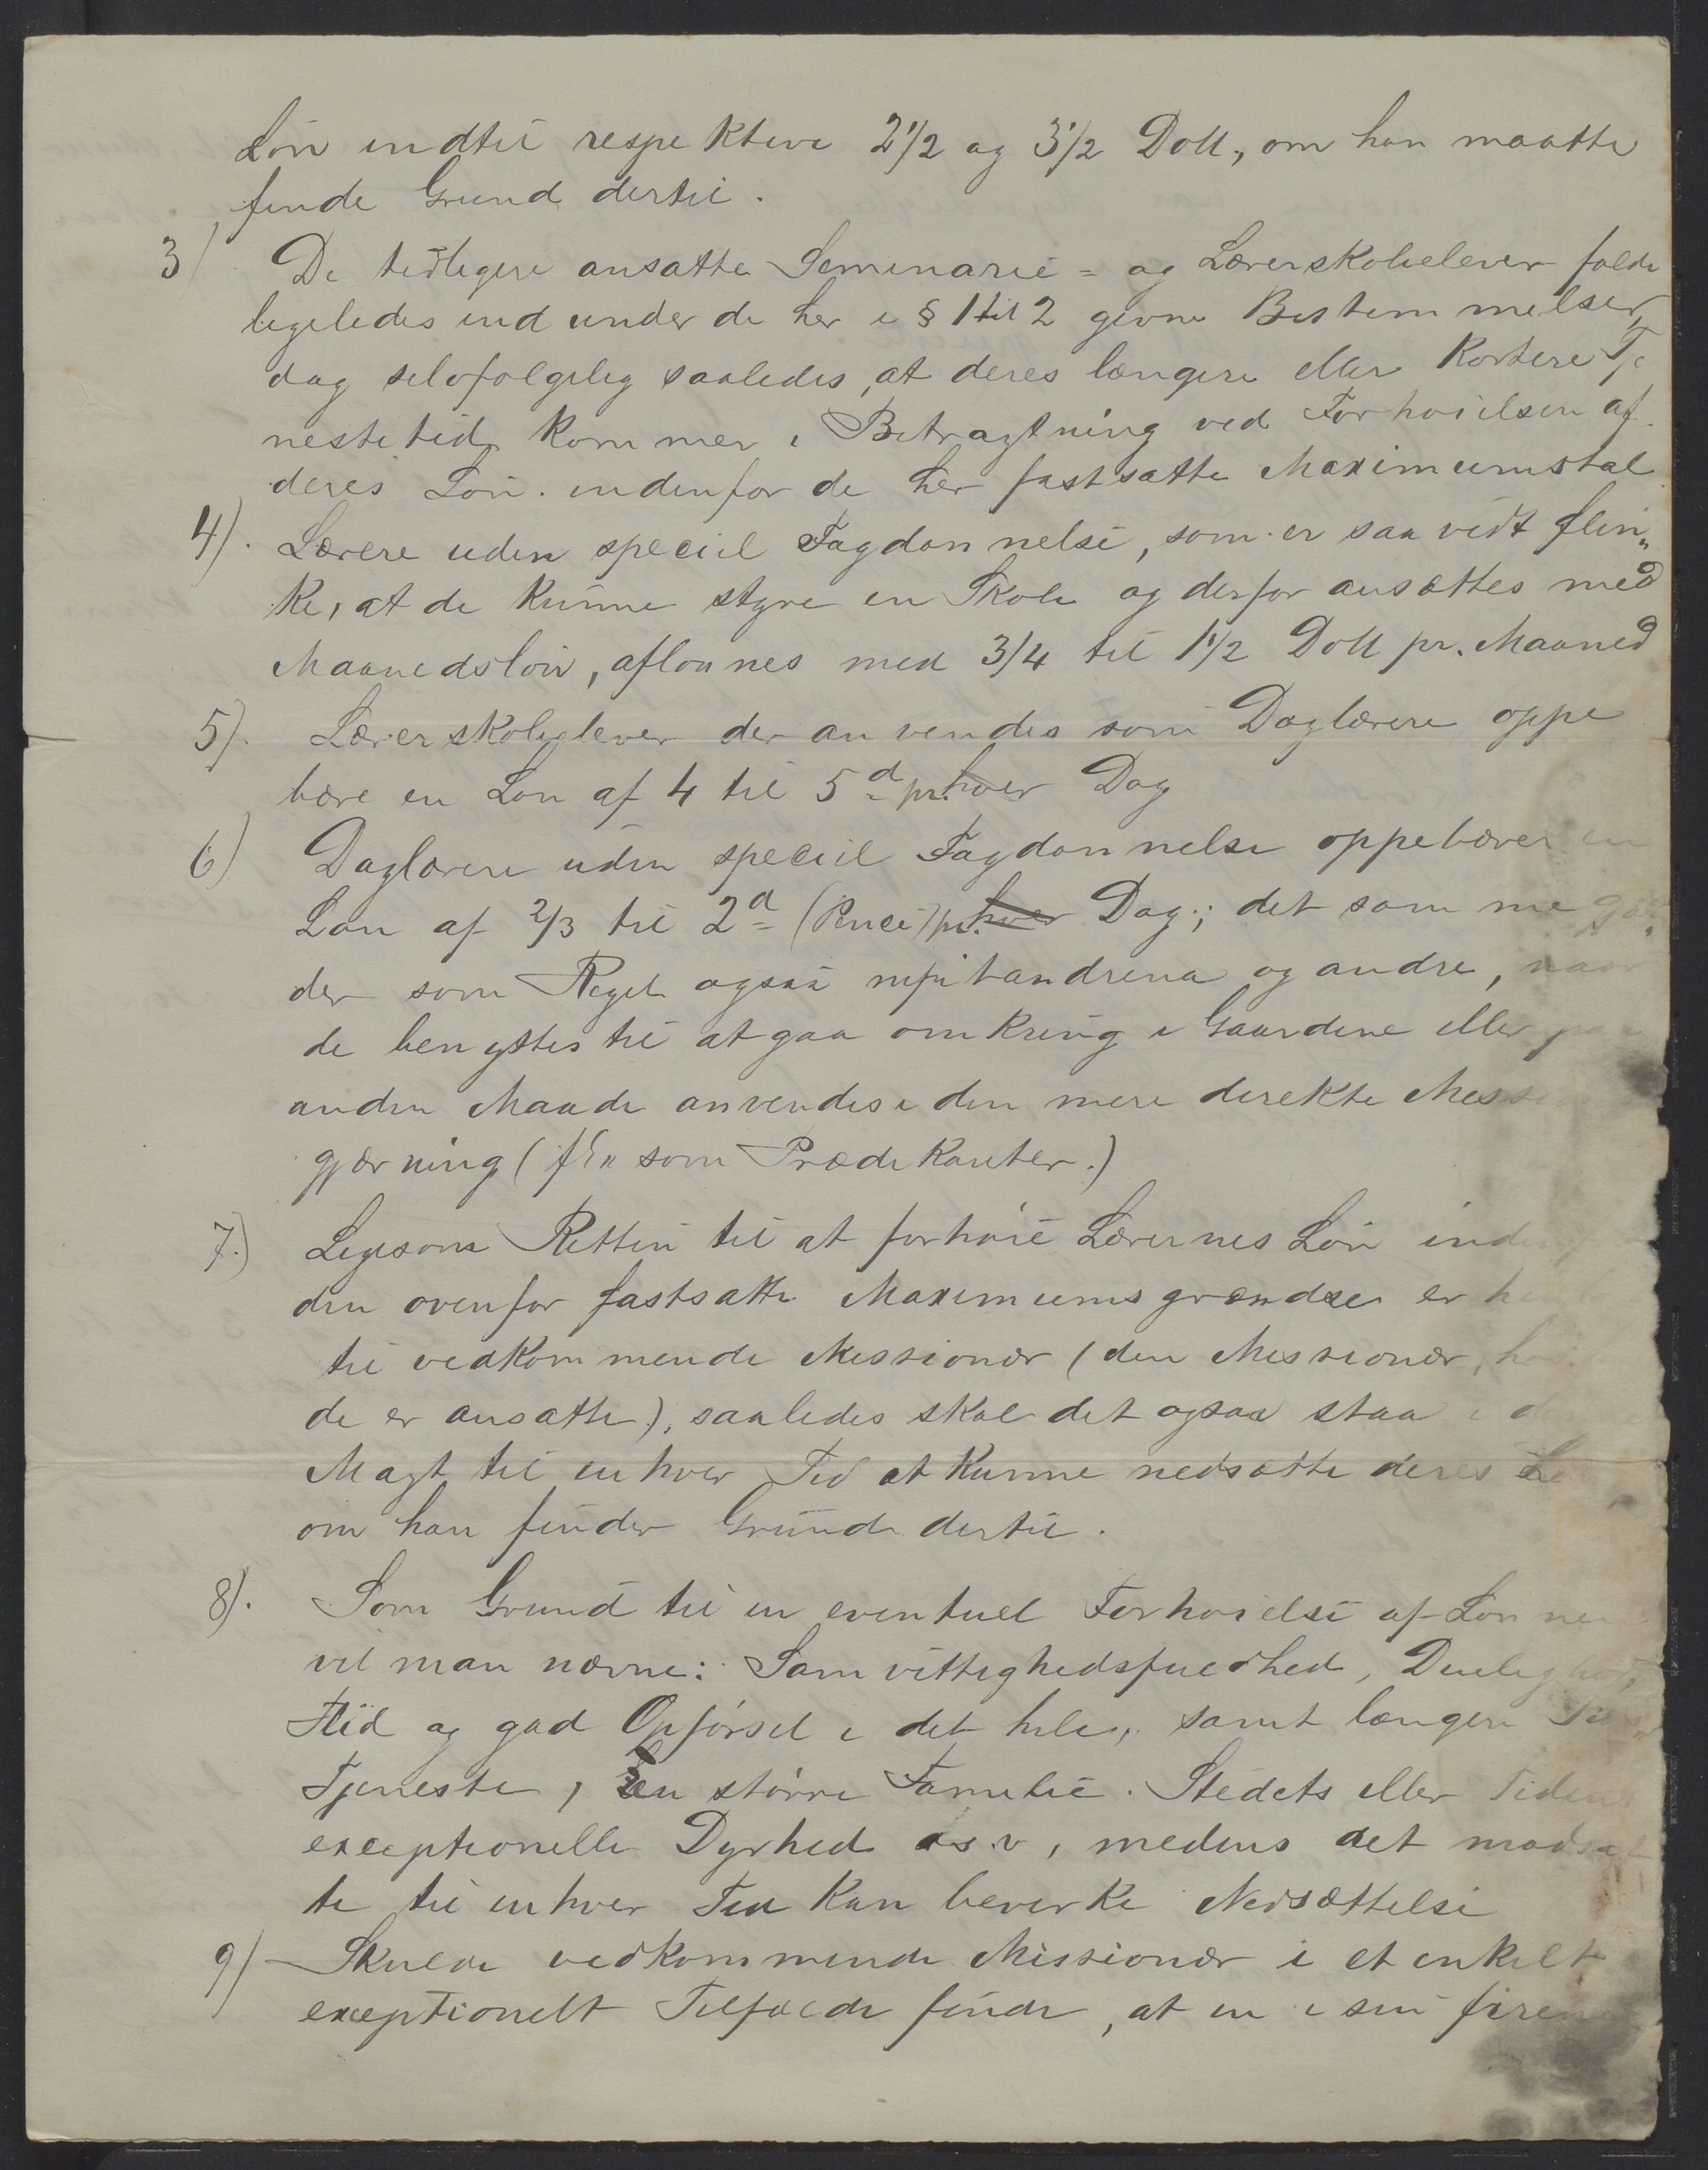 Lön indtil respektive 2 1/2 og 3 1/2 Doll., om han maatte
finde Grund dertil.
3) De tidligere ansatte Seminarie- og Lærerskoleelever falde
ligeledes ind under de her i § 1 til 2 givne Bestemmelser,
dog selvfølgelig saaledes, at deres længere eller kortere Tje
nestetid kommer i Betragtning ved Forhøielsen af
deres Løn indenfor de her fastsatte Maximumstal
4). Lærere uden speciel Fagdannelse, som er saavidt flin„
ke, at de kunne styre en Skole og derfor ansættes med
Maanedsløn, aflønnes med 3/4 til 1 1/2 Doll pr. Maaned
5). Lærerskoleelever der anvendes som Daglærere oppe
bære en Løn af 4 til 5 d pr. hver Dag
6) Daglærere uden speciel Fagdannelse oppebærer en
Løn af 2/3 til 2 d (Pence) pr. hver Dag; det samme gjæl„
der som Regel ogsaa mpitandrina og andre, naar
de benyttes til at gaa omkring i Gaardene eller paa
anden Maade anvendes i den mere direkte
gjærning (f Ex som Prædikanter.)
7.) Ligesom Retten til at forhøie Lærernes Løn
den ovenfor fastsatte Maximumsgrændse er
til vedkommende Missionær (den Missionær,
de er ansatte), saaledes skal det ogsaa staa i
Magt til enhver Tid at kunne nedsætte deres
om han finder Grund dertil.
8). Som Grund til en eventuel Forhøielse af Lønnen
vil man nævne: Samvittighedsfuldhed, Duelighed,
Flid og god Opførsel i det hele, samt længere
Tjeneste, en større Familie. Stedets eller Tidens
exceptionelle Dyrhed o s. v, medens det modsat
te til enhver Tid kan bevirke Nedsættelse
9) Skulde vedkommende Missionær i et enkelt
exceptionelt Tilfælde finde, at en i sin